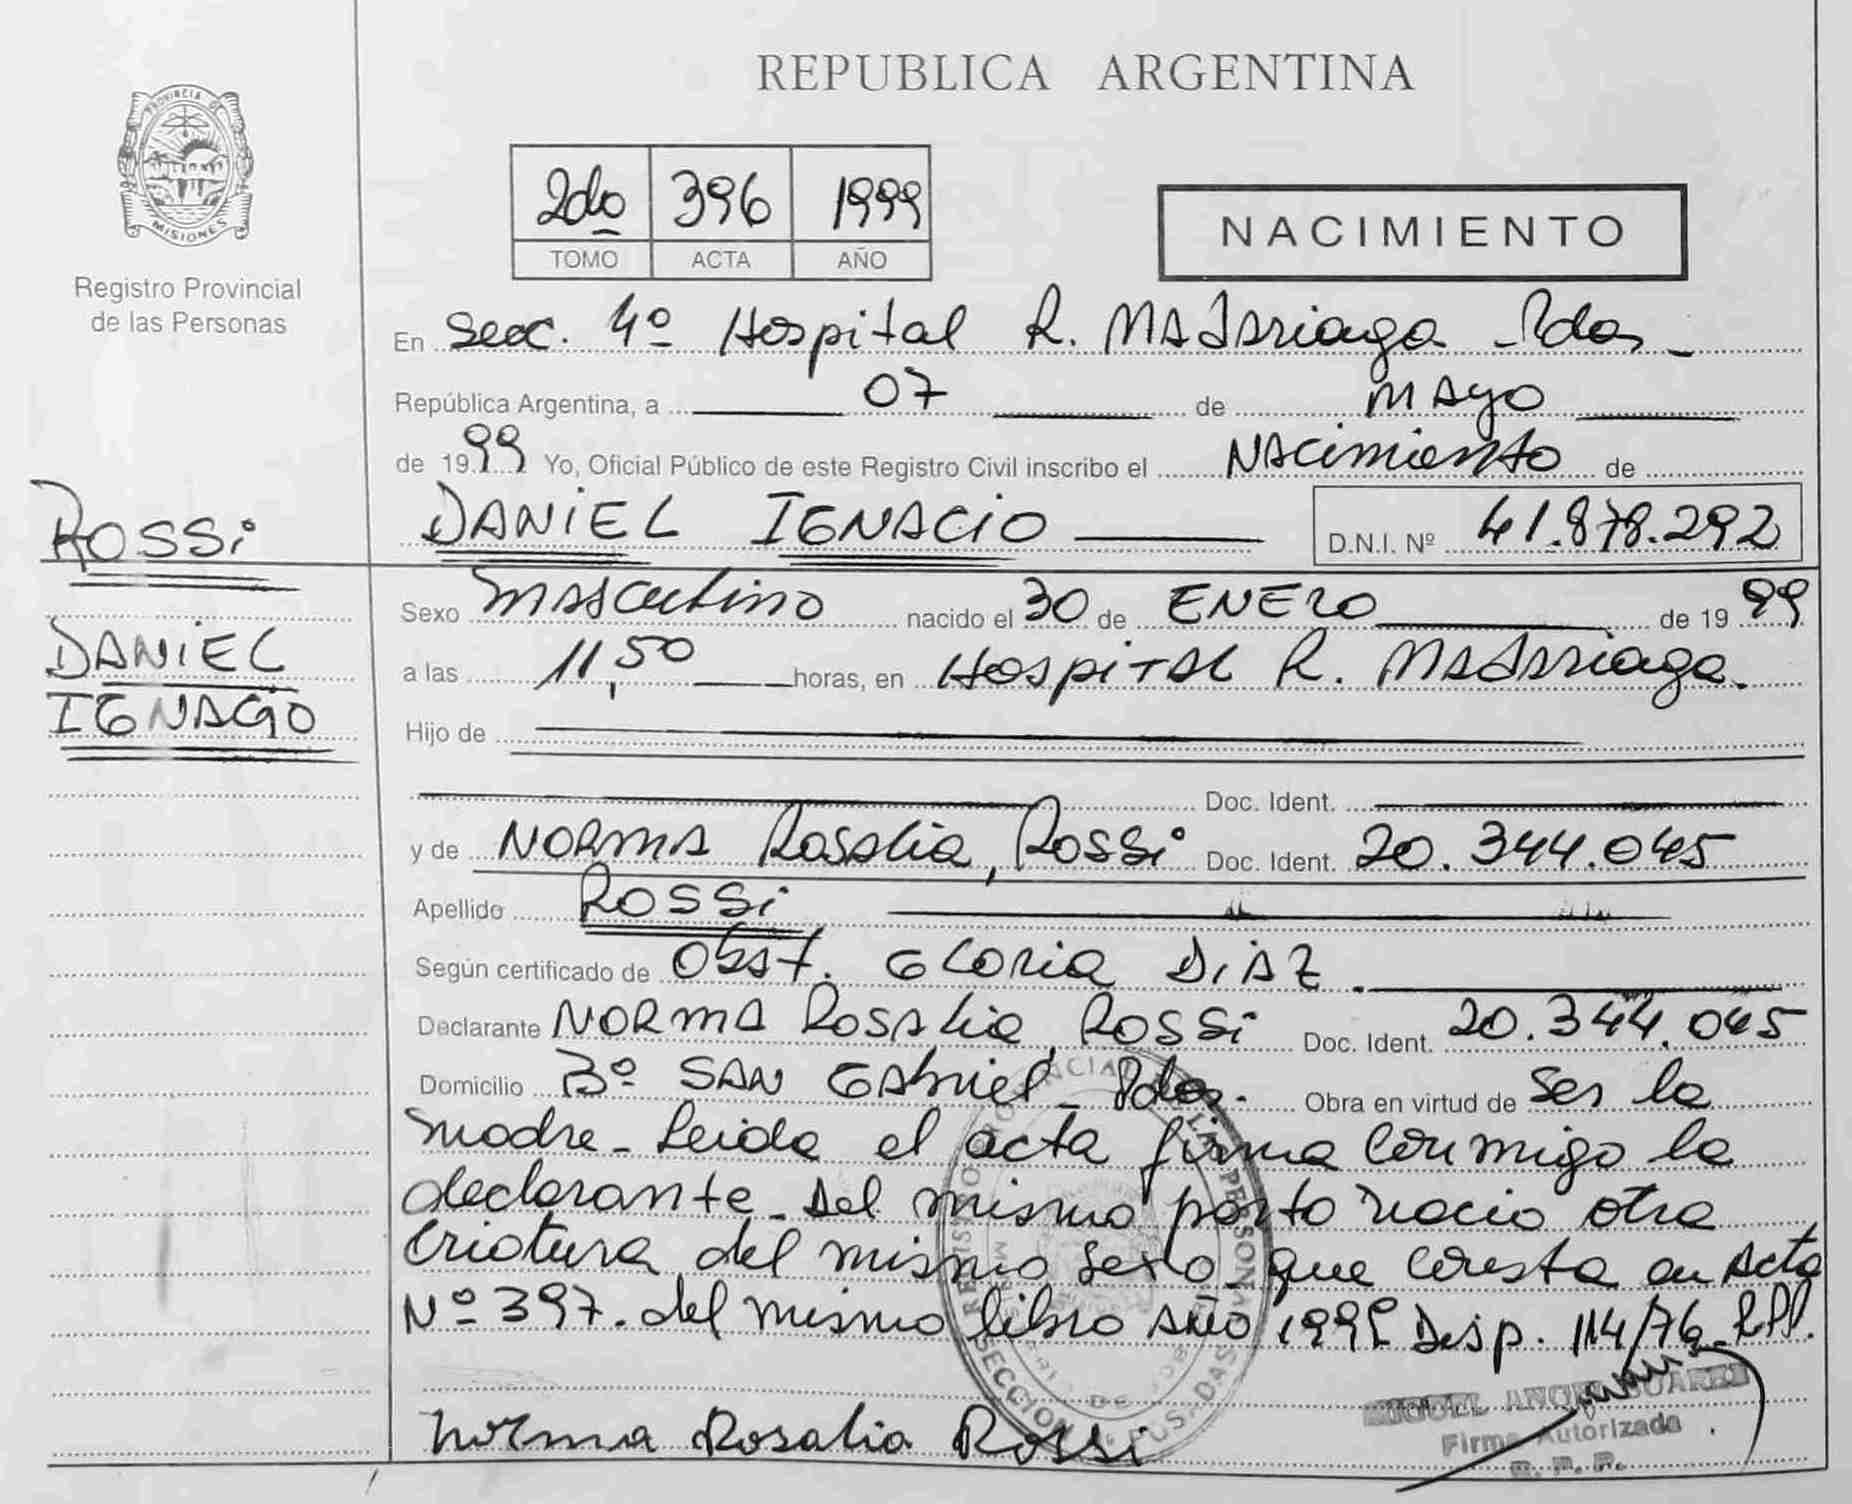 REPUBLICA ARGENTINA
PROVINCIA DE MISIONES
Registro Provincial
de las Personas
2do 396 1999
TOMO ACTA AÑO
NACIMIENTO
En Secc. 4º Hospital R. MADAriaga - Pdas -
República Argentina, a 07 de MAyo
de 1999 Yo, Oficial Público de este Registro Civil inscribo el NAcimiento de
DANiEL IGNACiO D.N.I. Nº 41.878.292
ROSSi
DANiEL
IGNACiO
Sexo mAsculino nacido el 30 de ENERO de 1999
a las 11,50 horas, en HospiTAL R. MADAriaga.
Hijo de
Doc. Ident.
y de NORMA Rosalia, Rossi Doc. Ident. 20.344.045
Apellido ROSSi
Según certificado de Obst. GLORiA DiAZ.
Declarante NORMA RosAlia, Rossi Doc. Ident. 20.344.045
Domicilio Bº SAN GAbriel - Pdas. Obra en virtud de ser la
madre - Leida el acta firma conmigo la
declarante - Del mismo parto nacio otra
criatura del mismo sexo que consta en Acta
Nº 397. del mismo libro Año 1999 Disp. 114/76 - RPP.
Norma Rosalia Rossi
MIGUEL ANGEL SUAREZ
Firma Autorizada
R. P. P.